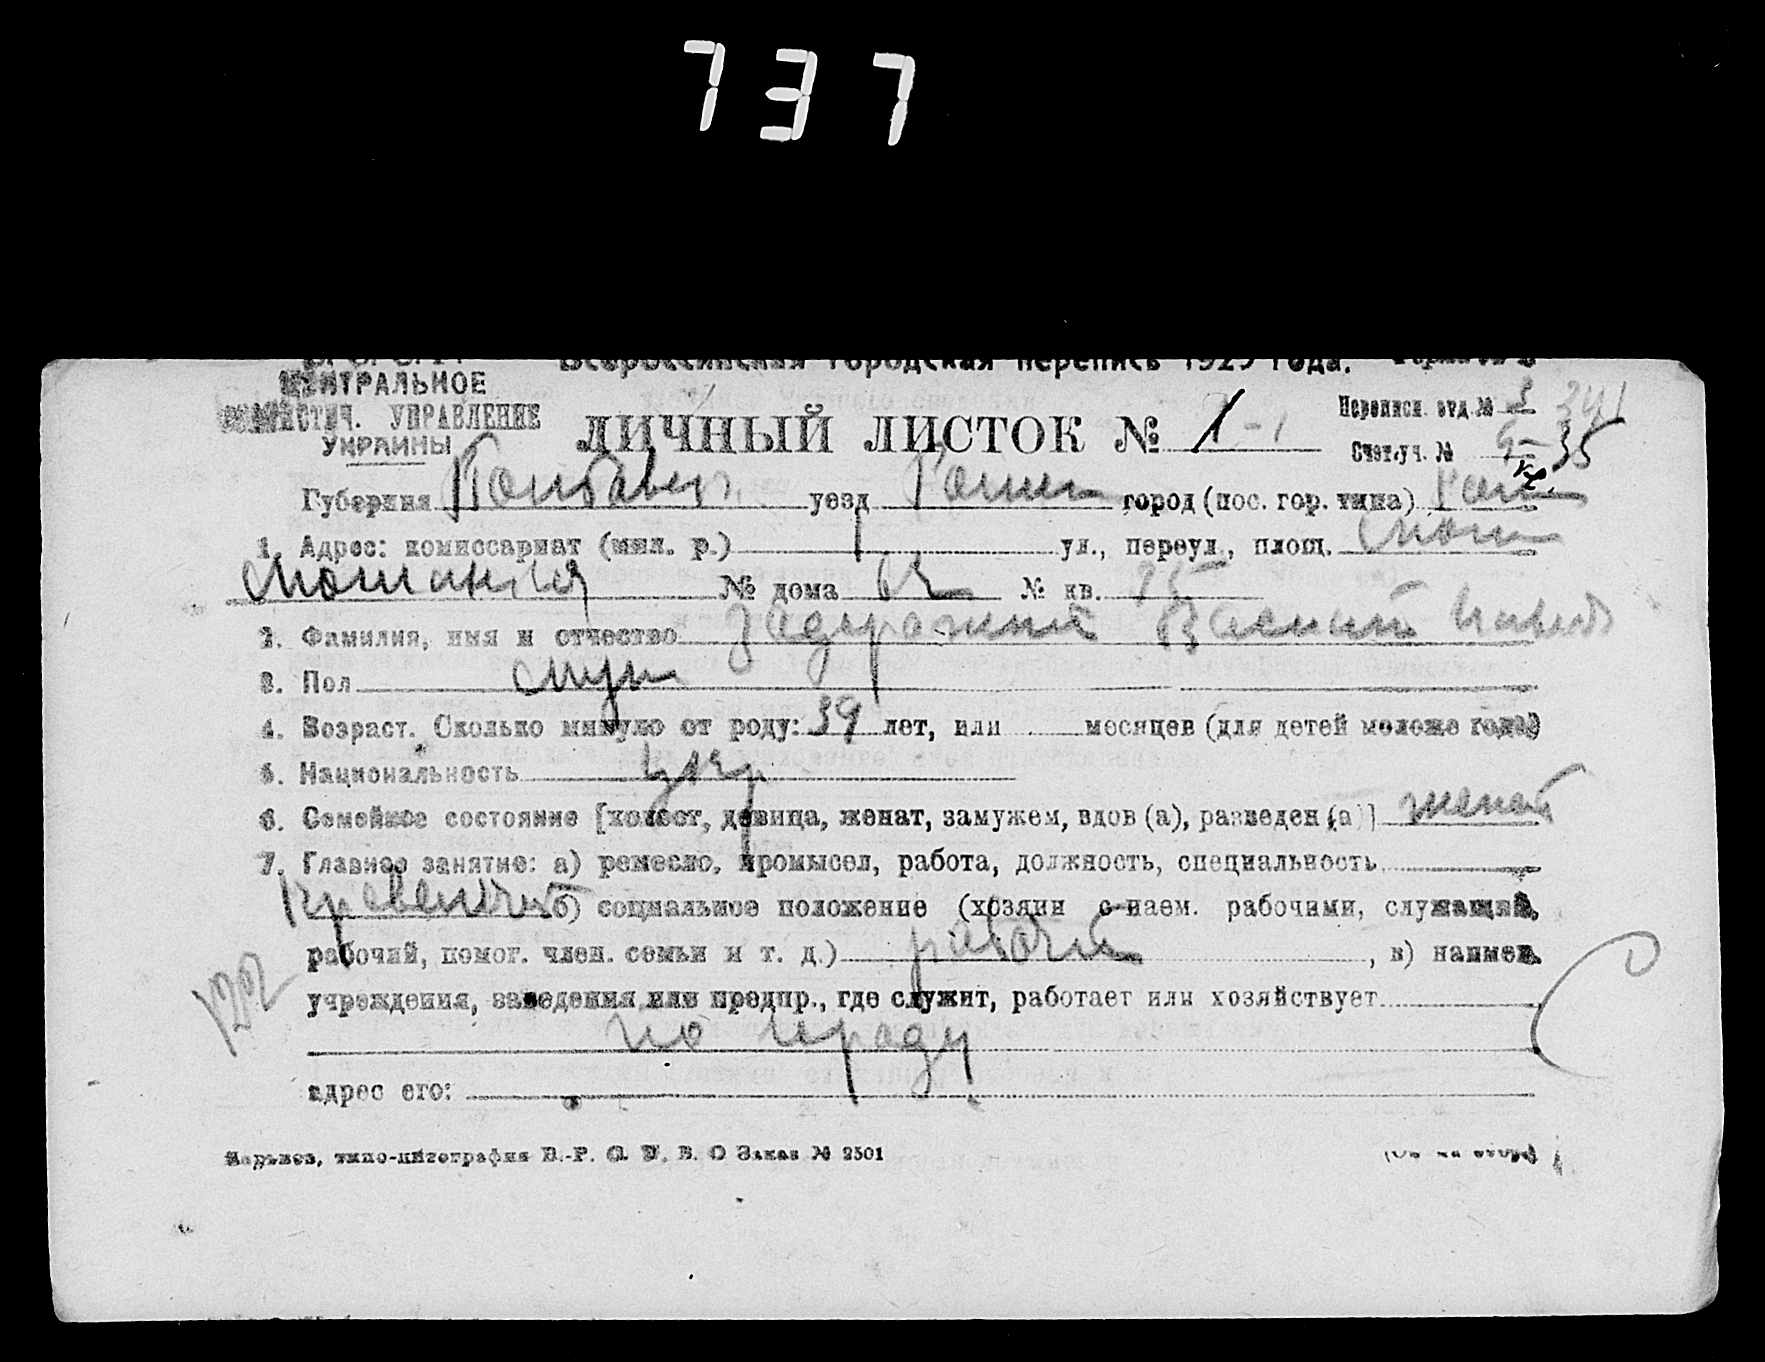 737
Всероссийская городская перепись 1923 года.
ЦЕНТРАЛЬНОЕ
СТАТИСТИЧ. УПРАВЛЕНИЕ
УКРАИНЫ
ЛИЧНЫЙ ЛИСТОК № 1-1
Переписн. отд. № 3 341
Счет. уч. № 35
Губерния Полтавск уезд Ромен город (пос. гор. типа) Ром
1. Адрес: комиссариат (мил. р.) 1 ул., переул., площ.
№ дома № кв.
2. Фамилия, имя и отчество Задеражний Василий
3. Пол муж
4. Возраст. Сколько минуло от роду: 39 лет, или месяцев (для детей моложе года)
5. Национальность укр
6. Семейное состояние [холост, девица, женат, замужем, вдов (а), разведен (а)] женат
7. Главное занятие: а) ремесло, промысел, работа, должность, специальность
б) социальное положение (хозяин с наем. рабочими, служащий,
рабочий, помог. член. семьи и т. д.) рабочий, в) наимен.
учреждения, заведения или предпр., где служит, работает или хозяйствует
122
по городу
адрес его:
Харьков, типо-литография В.-Р. С. У. В. О Заказ № 2501